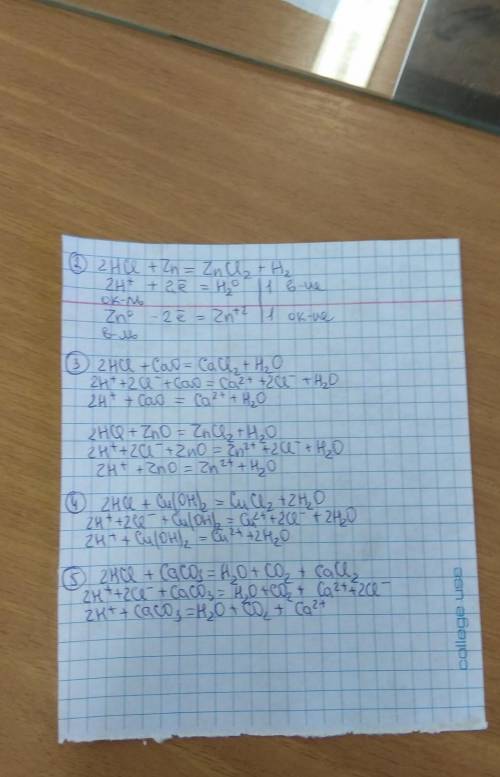 ② 2HCl + Zn = ZnCl₂ + H₂
2H⁺ + 2ē = H₂⁰ | 1 в-ие
ок-ль
Zn⁰ - 2ē = Zn⁺² | 1 ок-ие
в-ль
③ 2HCl + CaO = CaCl₂ + H₂O
2H⁺ + 2Cl⁻ + CaO = Ca²⁺ + 2Cl⁻ + H₂O
2H⁺ + CaO = Ca²⁺ + H₂O
2HCl + ZnO = ZnCl₂ + H₂O
2H⁺ + 2Cl⁻ + ZnO = Zn²⁺ + 2Cl⁻ + H₂O
2H⁺ + ZnO = Zn²⁺ + H₂O
④ 2HCl + Cu(OH)₂ = CuCl₂ + 2H₂O
2H⁺ + 2Cl⁻ + Cu(OH)₂ = Cu²⁺ + 2Cl⁻ + 2H₂O
2H⁺ + Cu(OH)₂ = Cu²⁺ + 2H₂O
⑤ 2HCl + CaCO₃ = H₂O + CO₂ + CaCl₂
2H⁺ + 2Cl⁻ + CaCO₃ = H₂O + CO₂ + Ca²⁺ + 2Cl⁻
2H⁺ + CaCO₃ = H₂O + CO₂ + Ca²⁺
college use